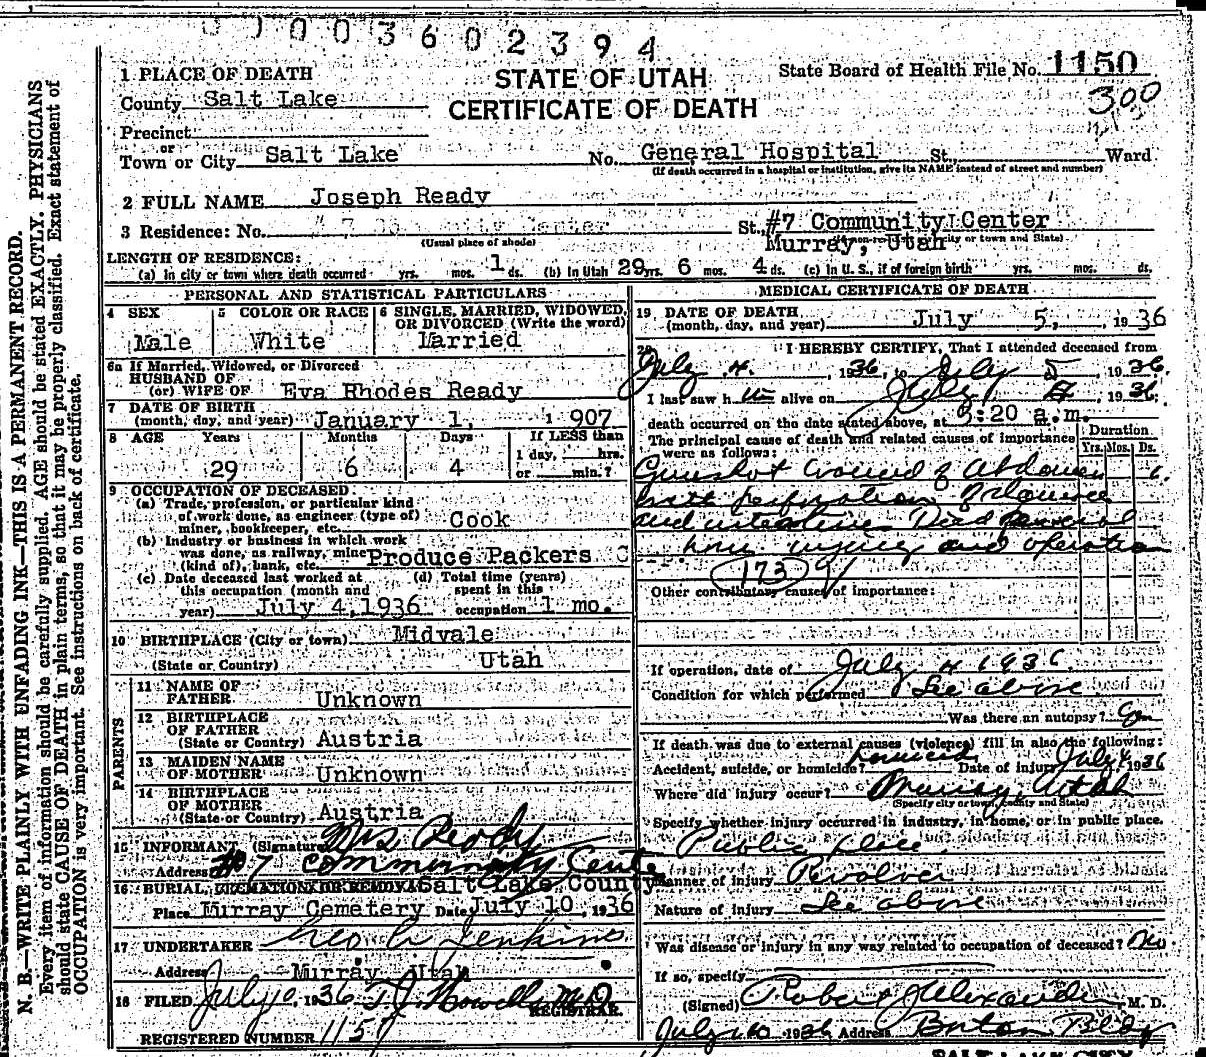 0 1 0 0 3 6 0 2 3 9 4
1 PLACE OF DEATH
STATE OF UTAH
State Board of Health File No. 1150
County Salt Lake
CERTIFICATE OF DEATH
300
Precinct
or
Town or City Salt Lake No. General Hospital St., Ward
(If death occurred in a hospital or institution, give its NAME instead of street and number)
2 FULL NAME Joseph Ready
3 Residence: No. St., #7 Community Center
(Usual place of abode) Murray, Utah
LENGTH OF RESIDENCE:
(a) In city or town where death occurred yrs. mos. 1 ds. (b) In Utah 29 yrs. 6 mos. 4 ds. (c) In U. S., if of foreign birth yrs. mos. ds.
PERSONAL AND STATISTICAL PARTICULARS
4 SEX
Male
5 COLOR OR RACE
White
6 SINGLE, MARRIED, WIDOWED,
OR DIVORCED (Write the word)
Married
6a If Married, Widowed, or Divorced
HUSBAND OF
(or) WIFE OF Eva Rhodes Ready
7 DATE OF BIRTH
(month, day, and year) January 1, 1907
8 AGE Years Months Days If LESS than
1 day, hrs.
29 6 4 or min.?
9 OCCUPATION OF DECEASED:
(a) Trade, profession, or particular kind
of work done, as engineer (type of)
miner, bookkeeper, etc. Cook
(b) Industry or business in which work
was done, as railway, mine
(kind of), bank, etc. Produce Packers C
(c) Date deceased last worked at
this occupation (month and
year) July 4, 1936
(d) Total time (years)
spent in this
occupation 1 mo.
10 BIRTHPLACE (City or town) Midvale
(State or Country) Utah
PARENTS
11 NAME OF
FATHER Unknown
12 BIRTHPLACE
OF FATHER
(State or Country) Austria
13 MAIDEN NAME
OF MOTHER Unknown
14 BIRTHPLACE
OF MOTHER
(State or Country) Austria
15 INFORMANT (Signature) Mrs Ready
Address #7 Community Cente
16 BURIAL, CREMATION OR REMOVAL Salt Lake County
Place Murray Cemetery Date July 10, 1936
17 UNDERTAKER Geo A Jenkins
Address Murray, Utah
18 FILED July 10, 1936 T. J. Howells M.D.
REGISTRAR.
REGISTERED NUMBER 1157
MEDICAL CERTIFICATE OF DEATH
19 DATE OF DEATH
(month, day, and year) July 5, 1936
20 I HEREBY CERTIFY, That I attended deceased from
July 4, 1936, to July 5 1936.
I last saw him alive on July 1936
death occurred on the date stated above, at 3:20 a.m.
The principal cause of death and related causes of importance
were as follows:
Duration
Yrs. Mos. Ds.
Gunshot wound of abdomen
with perforation of
and intestines Died several
hours injury and operation
173
Other contributory causes of importance:
If operation, date of July 4 1936
Condition for which performed See above
Was there an autopsy?
If death was due to external causes (violence) fill in also the following:
Accident, suicide, or homicide? homicide Date of injury July 4 1936
Where did injury occur? Murray, Utah
(Specify city or town, county and State)
Specify whether injury occurred in industry, in home, or in public place.
Public place
Manner of injury Revolver
Nature of injury See above
Was disease or injury in any way related to occupation of deceased? No
If so, specify
(Signed) Robert J Alexander M. D.
July 10 1936 Address Boston Bldg
SALT LAKE CITY
N. B.—WRITE PLAINLY WITH UNFADING INK—THIS IS A PERMANENT RECORD.
Every item of information should be carefully supplied. AGE should be stated EXACTLY. PHYSICIANS
should state CAUSE OF DEATH in plain terms, so that it may be properly classified. Exact statement of
OCCUPATION is very important. See instructions on back of certificate.